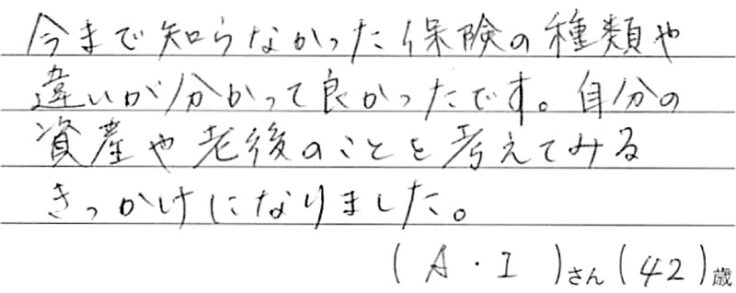 今まで知らなかった保険の種類や
違いが分かって良かったです。自分の
資産や老後のことを考えてみる
きっかけになりました。
(A・I)さん(42)歳